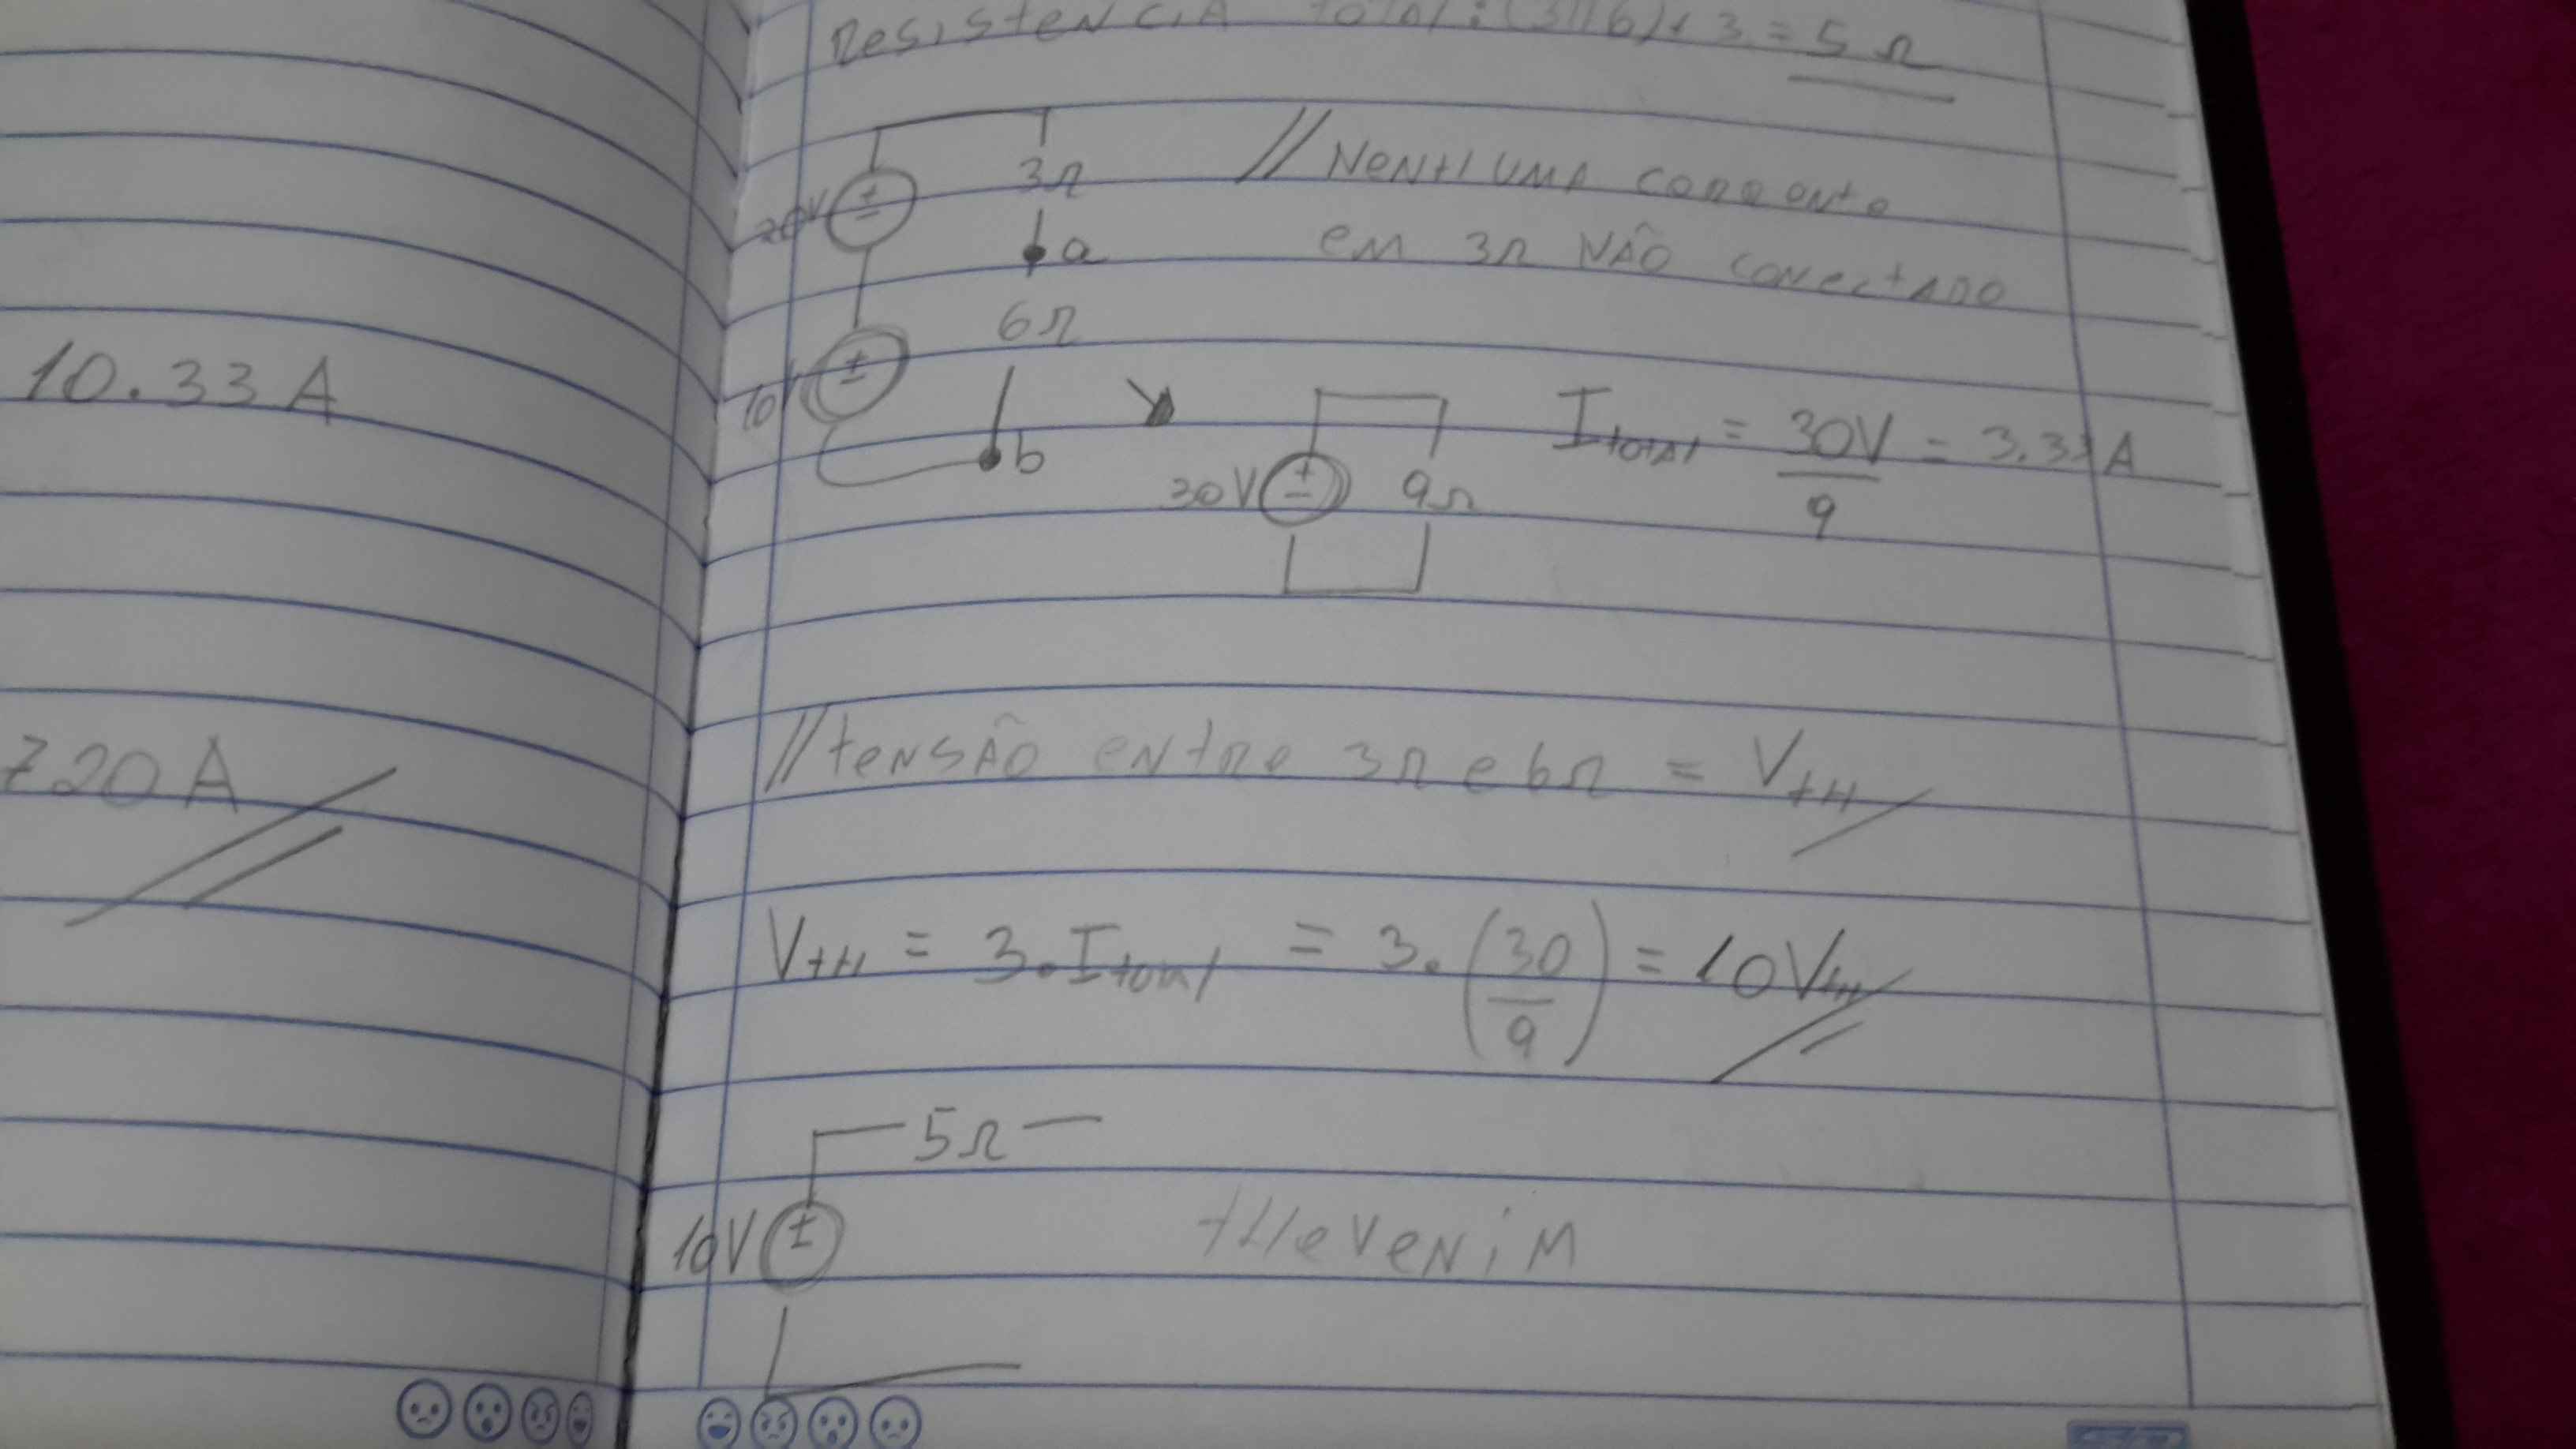 10.33 A
720 A
Resistencia total: (3//6)+3 = 5 Ω
3Ω
20V
+
-
a
// Nenhuma corrente
em 3Ω NÃO conectado
6Ω
10V
+
-
b
30V
+
-
9Ω
Itotal = 30V = 3.33A
9
// tensÃo entre 3Ω e 6Ω = VtH
VtH = 3.Itotal = 3.(30/9) = 10Vth
5Ω
10V
+
-
tHeveNiM